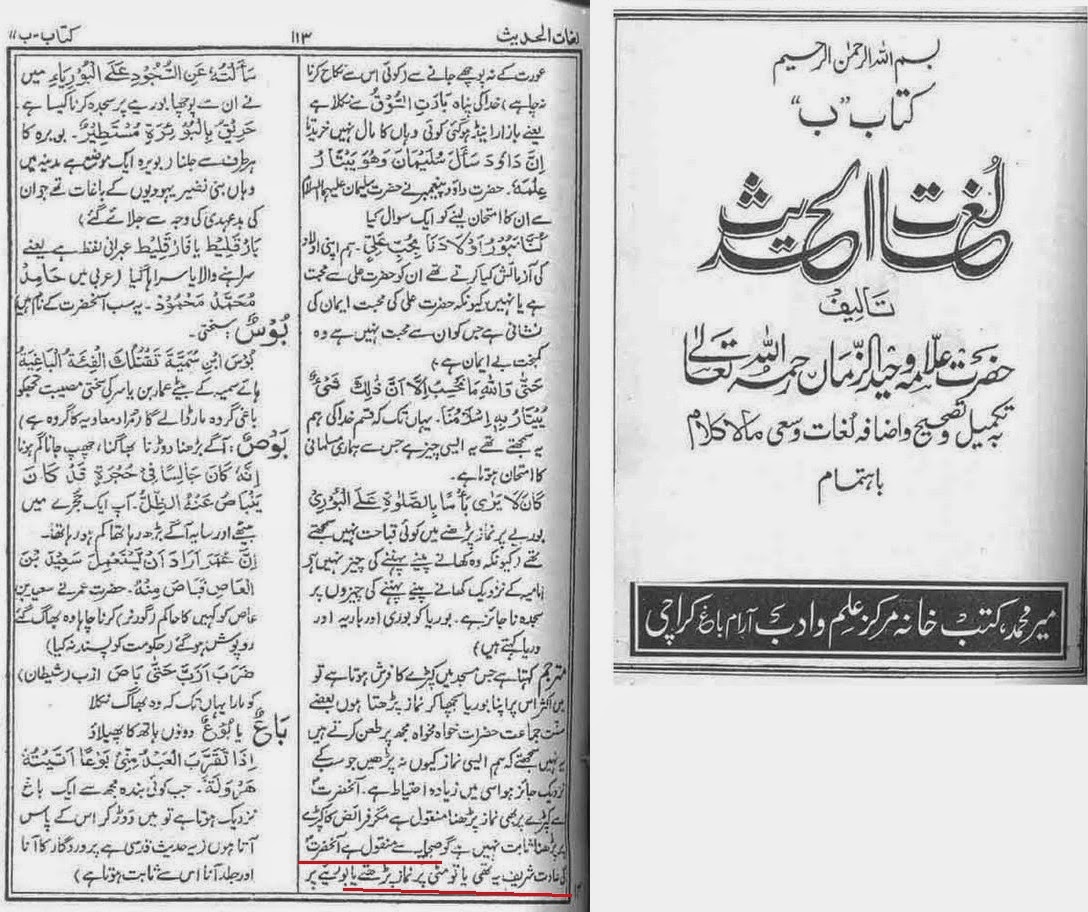 لغات الحدیث
۱۱۳
کتاب - ب
عورت کے نہ پوچھے جانے سے (کوئی اس سے نکاح کرنا
نہ چاہے) خدا کی پناہ بَارَتِ السُّوْقُ سے نکلا ہے
یعنے بازار اینڈ ہو گئی کوئی وہاں کا مال نہیں خریدتا
اِنَّ دَاوٗدَ سَأَلَ سُلَیْمَانَ وَهُوَ یَبْتَارُ
عِلْمَهٗ۔ حضرت داؤد پیغمبر نے حضرت سلیمان علیہ السلام
سے ان کا امتحان لینے کو ایک سوال کیا
كُنَّا نَبُوْرُ اَوْلَادَنَا بِحُبِّ عَلِیٍّ۔ ہم اپنی اولاد
کی آزمائش کیا کرتے تھے ان کو حضرت علی سے محبت
ہے یا نہیں کیونکہ حضرت علی کی محبت ایمان کی
نشانی ہے جس کو ان سے محبت نہیں ہے وہ
کمبخت بے ایمان ہے)
حَتّٰی وَاللّٰهِ مَا نَحْسِبُ اِلَّا اَنَّ ذٰلِكَ شَیْءٌ
یُبْتَارُ بِهٖ اِسْلَامُنَا۔ یہاں تک کہ قسم خدا کی ہم
یہ سمجھتے تھے یہ ایسی چیز ہے جس سے ہماری مسلمانی
کا امتحان ہوتا ہے۔
كَانَ لَا یَرٰی بَأْسًا بِالصَّلٰوةِ عَلَی الْبُوْرِیِّ
بوریے پر نماز پڑھنے میں کوئی قباحت نہیں سمجھتے
تھے (کیونکہ وہ کھانے پینے پہننے کی چیز نہیں ہے
امامیہ کے نزدیک کھانے پینے پہننے کی چیزوں پر
سجدہ نا جائز ہے۔ بوریا کو بوری اور باریہ اور
وریا کہتے ہیں)
مترجم کہتا ہے جس مسجد میں کپڑے کا فرش ہوتا ہے تو
میں اکثر اس پر اپنا بوریا بچھا کر نماز پڑھتا ہوں بعضے
سنت جماعت حضرات خواہ مخواہ مجھ پر طعن کرتے ہیں
یہ نہیں سمجھتے کہ ہم ایسی نماز کیوں نہ پڑھیں جو سب کے
نزدیک جائز ہو اسی میں زیادہ احتیاط ہے۔ آنحضرت
سے کپڑے پر بھی نماز پڑھنا منقول ہے مگر فرائض کا کپڑے
پر پڑھنا ثابت نہیں ہے گو صحابہ سے منقول ہے آنحضرت
کی عادت شریف یہ تھی یا تو مٹی پر نماز پڑھتے یا بوریئے پر
سَأَلْتُهٗ عَنِ السُّجُوْدِ عَلَی الْبُوْرِیَاءِ میں
نے ان سے پوچھا بوریے پر سجدہ کرنا کیسا ہے
حَرِیْقٌ بِالْبُوَیْرَةِ مُسْتَطِیْرٌ۔ بویرہ کا
ہر طرف سے جلنا (بویرہ ایک موضع ہے مدینہ میں
وہاں بنی نضیر یہودیوں کے باغات تھے جو ان
کی بدعہدی کی وجہ سے جلائے گئے)
بَارْقَلِیْط یا فَارْقَلِیْط عبرانی لفظ ہے یعنے
سراہنے والا یا سراہا گیا (عربی میں حَامِدٌ
مُحَمَّدٌ مَحْمُوْدٌ۔ یہ سب آنحضرت کے نام ہیں)
بُوْسٌ: سختی۔
بُوْسَ ابْنِ سُمَیَّةَ تَقْتُلُكَ الْفِئَةُ الْبَاغِیَةُ
ہائے سمیہ کے بیٹے عمار بن یاسر کی سختی مصیبت تجھکو
باغی گروہ مار ڈالے گا (مراد معاویہ کا گروہ ہے)
بَوْصٌ: آگے بڑھنا دوڑنا بھاگنا، چھپ جانا کم ہونا
اِنَّهٗ كَانَ جَالِسًا فِیْ حُجْرَةٍ قَدْ كَانَ
یَنْبَاصُ عَنْهُ الظِّلُّ۔ آپ ایک حجرے میں
بیٹھے اور سایہ آگے بڑھ رہا تھا کم ہو رہا تھا۔
اِنَّ عُمَرَ اَرَادَ اَنْ یَّسْتَعْمِلَ سَعِیْدَ بْنَ
الْعَاصِ فَبَاصَ مِنْهُ۔ حضرت عمر نے سعید بن
عاص کو کہیں کا حاکم (گورنر) کرنا چاہا وہ بھاگ گئے
روپوش ہو گئے (حکومت کو پسند نہ کیا)
ضَرَبَ اَزَبَّ حَتّٰی بَاصَ ازب (شیطان)
کو مارا یہاں تک کہ وہ بھاگ نکلا
بَاعٌ یا بُوْعٌ دونوں ہاتھ کا پھیلاؤ
اِذَا تَقَرَّبَ الْعَبْدُ مِنِّیْ بَوْعًا اَتَیْتُهٗ
هَرْوَلَةً۔ جب کوئی بندہ مجھ سے ایک باع
نزدیک ہوتا ہے تو میں دوڑ کر اس کے پاس
آتا ہوں (یہ حدیث قدسی ہے پروردگار کا آنا
اور جلد آنا اس سے ثابت ہوتا ہے)
بسم اللہ الرحمٰن الرحیم
کتاب "ب"
لُغَاتُ الحدیث
تالیف
حضرت علامہ وحید الزمان رحمہ اللہ تعالیٰ
بہ تکمیل و تصحیح و اضافہ لغات وسعی مالا کلام
باہتمام
میر محمد، کتب خانہ مرکز علم و ادب آرام باغ کراچی